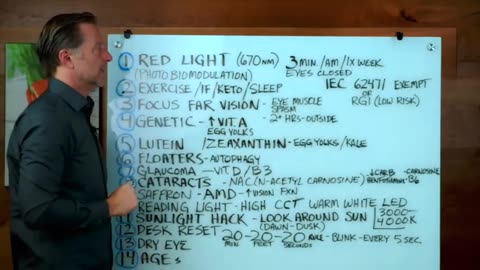 1 RED LIGHT (670NM) 3 MIN./AM/1X WEEK
(PHOTOBIOMODULATION) EYES CLOSED
2 EXERCISE/IF/KETO/SLEEP IEC 62471 EXEMPT OR RG1 (LOW RISK)
3 FOCUS FAR VISION - EYE MUSCLE SPASM
4 GENETIC - ↑VIT.A 2+ HRS-OUTSIDE
EGG YOLKS
5 LUTEIN /ZEAXANTHIN - EGG YOLKS/KALE
6 FLOATERS - AUTOPHAGY
7 GLAUCOMA - VIT.D/B3
8 CATARACTS - NAC (N-ACETYL CARNOSINE) ↓CARB - CARNOSINE
BENFOTIAMINE - B6
9 SAFFRON - AMD - ↑VISION FXN
10 READING LIGHT - HIGH CCT WARM WHITE LED
11 SUNLIGHT HACK - LOOK AROUND SUN 3000-4000K
(DAWN-DUSK)
12 DESK RESET 20-20-20 RULE - BLINK - EVERY 5 SEC.
MIN FEET SECONDS
13 DRY EYE
14 AGEs